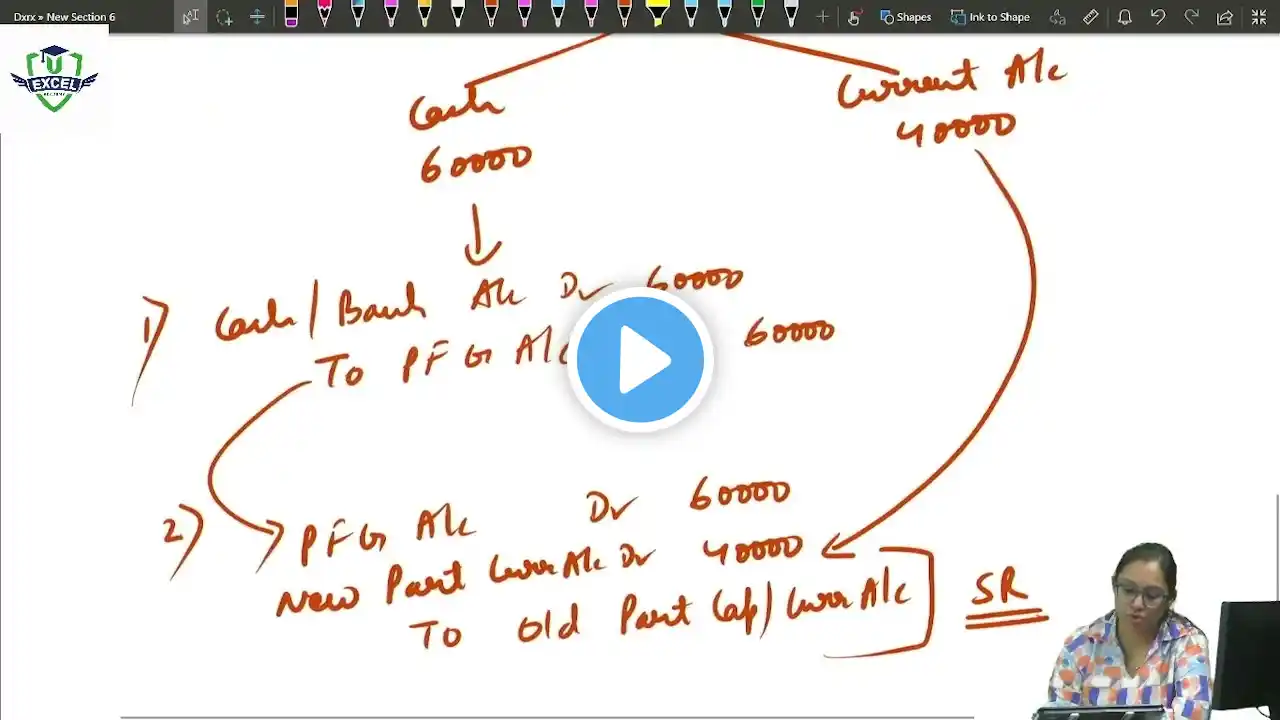 Dxrx » New Section 6
Shapes
Ink to Shape
U
EXCEL
Cash
60000
Current A/c
40000
1) Cash/Bank A/c Dr 60000
To PFG A/c 60000
2) PFG A/c Dr 60000
New Part Curr A/c Dr 40000
To Old Part Cap/Curr A/c
SR